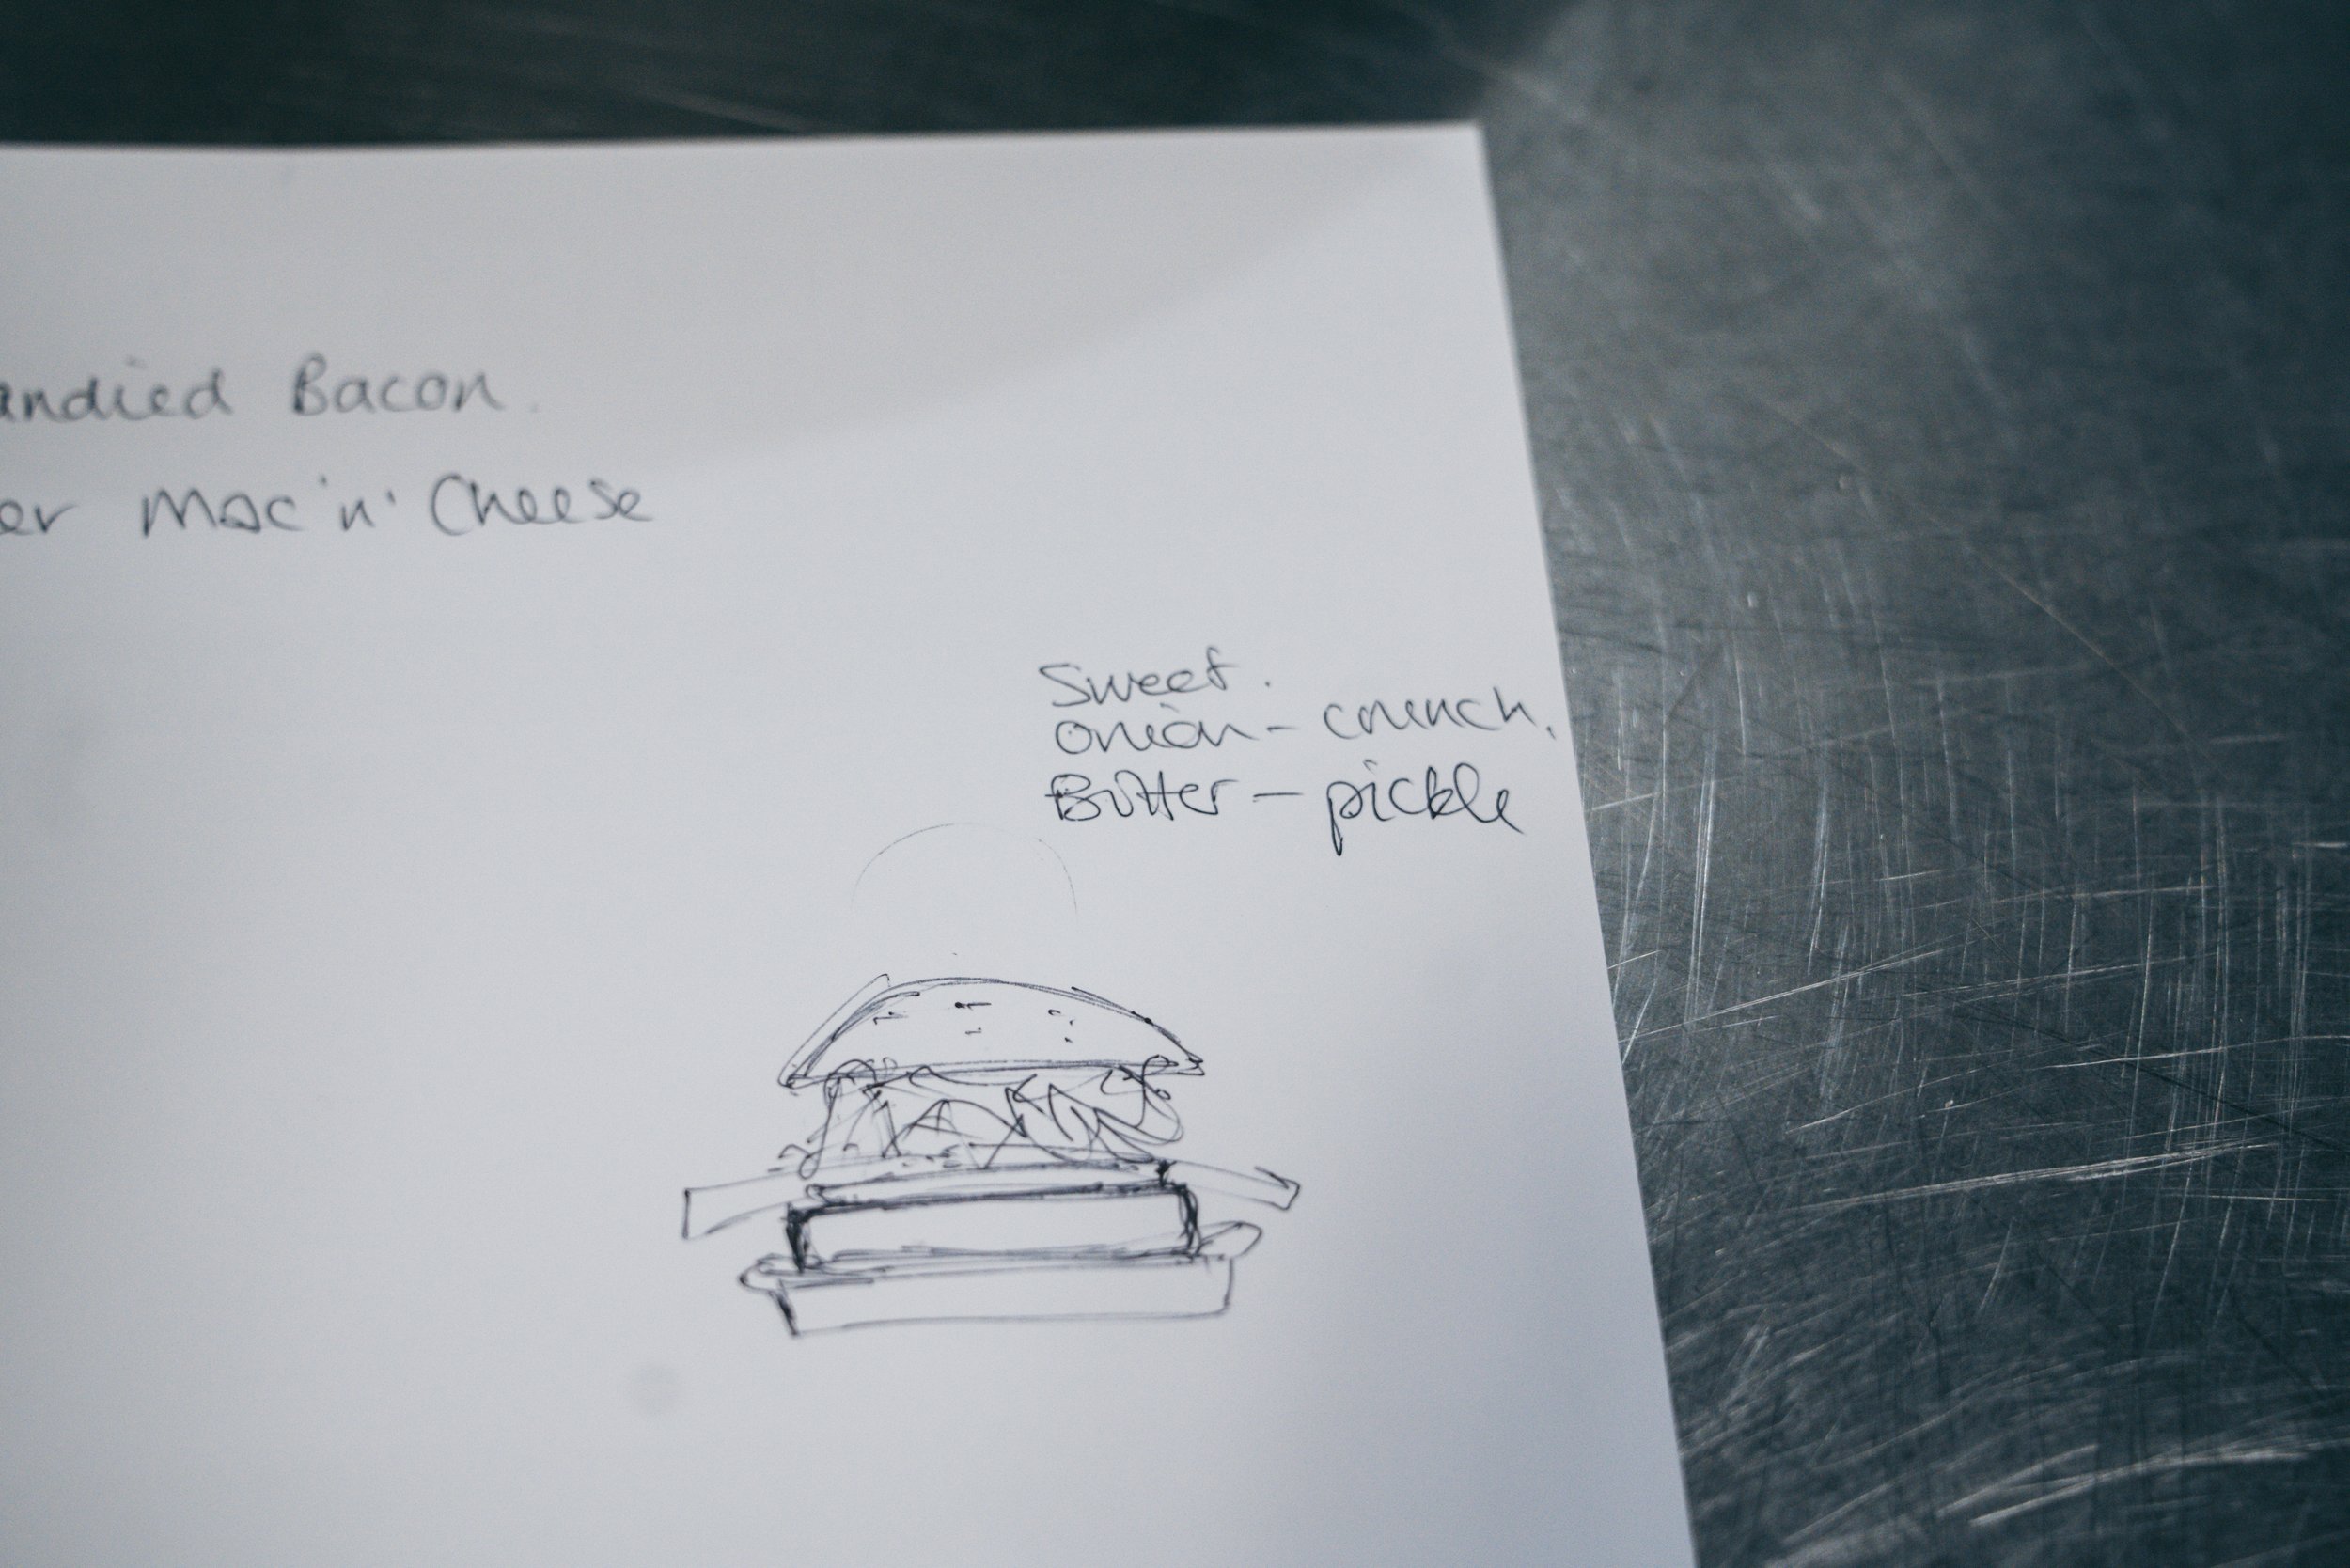 andied Bacon.
er Mac 'n' Cheese
Sweet.
onion - crunch.
Butter - pickle